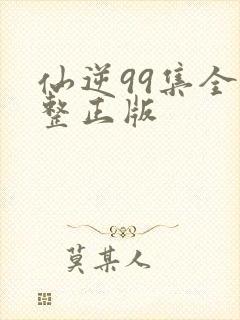 仙逆99集全
整正版
莫某人